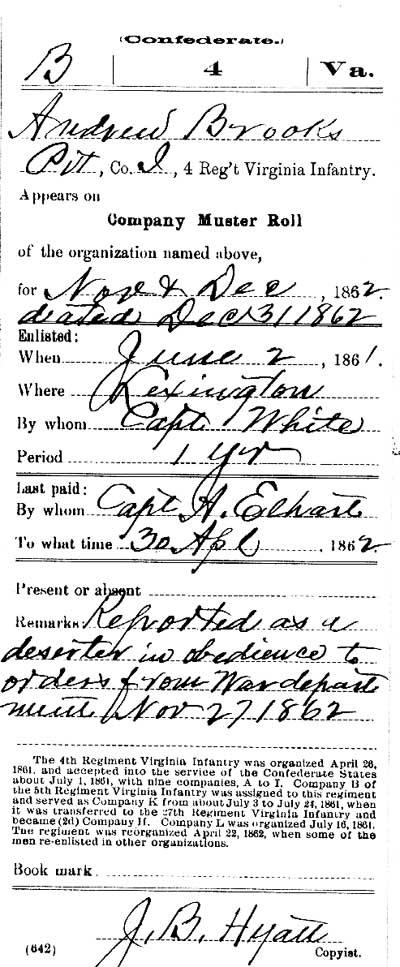 (Confederate.)
B | 4 | Va.
Andrew Brooks
Pvt, Co. I, 4 Reg't Virginia Infantry.
Appears on
Company Muster Roll
of the organization named above,
for Nov & Dec, 1862.
deated Dec 31 1862
Enlisted:
When June 2, 1861.
Where Lexington
By whom Capt White
Period 1 yr
Last paid:
By whom Capt A. Elhart
To what time 30 Apl, 1862.
Present or absent
Remarks Reported as a
deserter in obedience to
orders from War depart
ment Nov 27 1862
The 4th Regiment Virginia Infantry was organized April 26,
1861, and accepted into the service of the Confederate States
about July 1, 1861, with nine companies, A to I. Company B of
the 5th Regiment Virginia Infantry was assigned to this regiment
and served as Company K from about July 3 to July 24, 1861, when
it was transferred to the 27th Regiment Virginia Infantry and
became (2d) Company H. Company L was organized July 16, 1861.
The regiment was reorganized April 22, 1862, when some of the
men re-enlisted in other organizations.
Book mark
J. B. Hyatt
(642) Copyist.